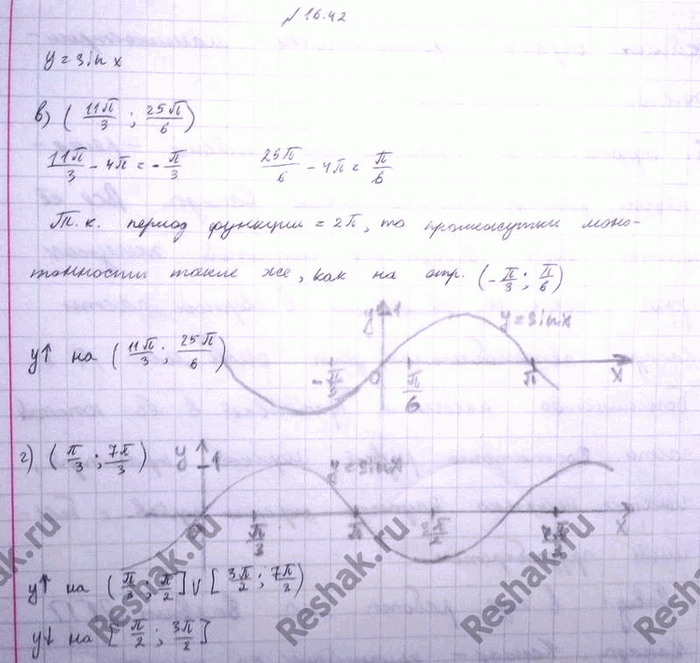 №16.42
y = sin x
в) (11π/3 ; 25π/6)
11π/3 - 4π = -π/3 25π/6 - 4π = π/6
Т.к. период функции = 2π, то промежутки моно-
тонности такие же, как на отр. (-π/3 ; π/6)
y 1 y=sinx
y↑ на (11π/3 ; 25π/6)
-π/3 0 π/6 π x
г) (π/3 ; 7π/3)
y 1 y=sinx
π/3 π 3π/2 x
y↑ на (π/3 ; π/2] ∪ [3π/2 ; 7π/3)
y↓ на [π/2 ; 3π/2]
Reshak.ru
Reshak.ru
Reshak.ru
Reshak.ru